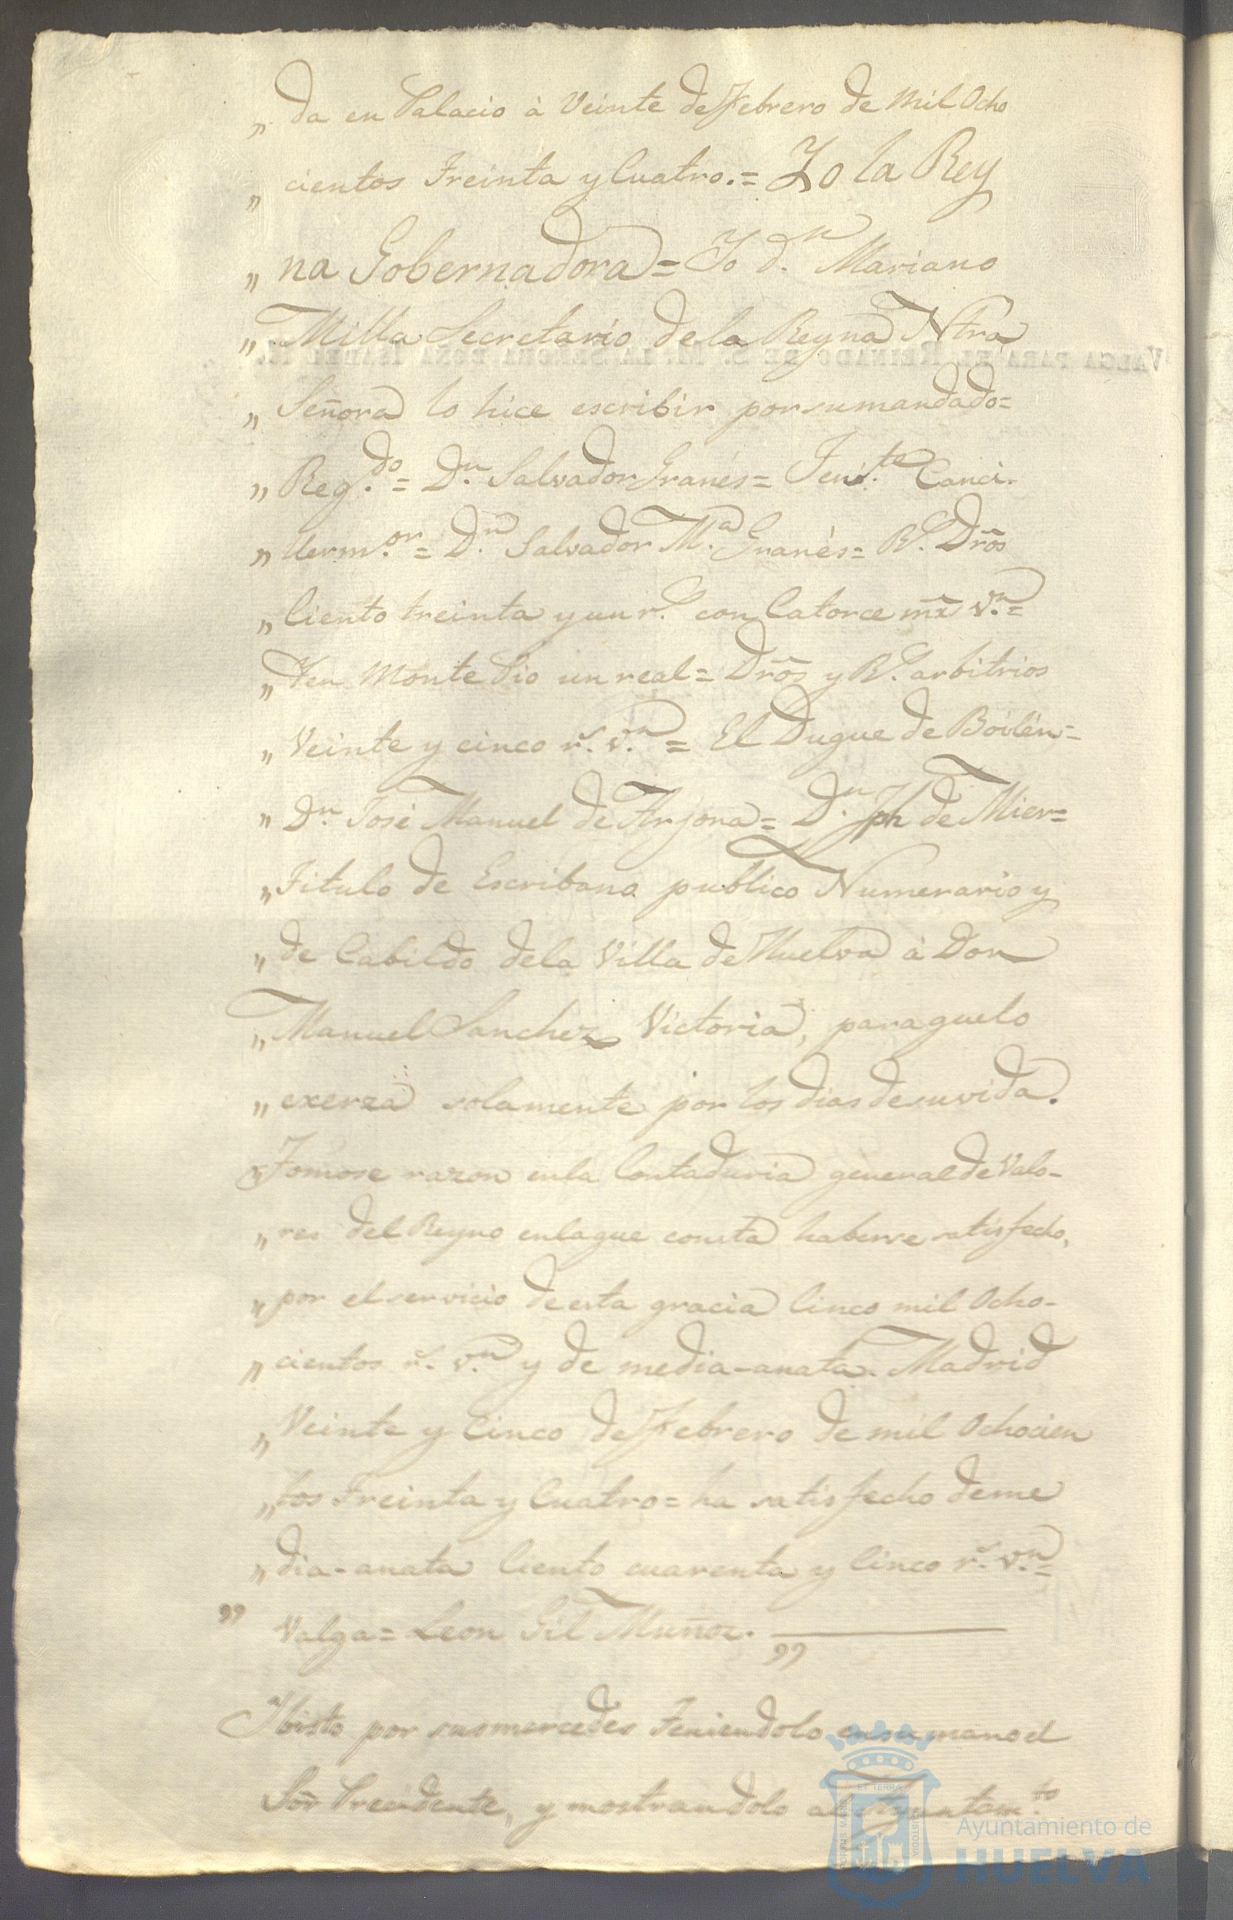 „ da en Palacio à Veinte de Febrero de Mil Ocho
„ cientos Treinta y Cuatro.= Yo la Rey
„ na Gobernadora = Yo d.n Mariano
„ Milla Secretario de la Reyna Ntra
VALGA PARA EL REINADO DE S. M. LA SEÑORA DOÑA ISABEL II.
„ Señora lo hice escribir por su mandado=
„ Reg.do = D.n Salvador Granés= Ten.te Canci-
„ llerm.or = D.n Salvador M.a Granès= R.s Drõs
„ Ciento treinta y un r.s con Catorce mrs v.n=
„ Y en Monte Pio un real= Drõs y R.s arbitrios
„ Veinte y cinco r.s v.n = El Duque de Bailén=
„ D.n José Manuel de Arjona= D.n Jph de Mier=
„ Titulo de Escribano publico Numerario y
„ de Cabildo dela Villa de Huelva à Don
„ Manuel Sanchez Victoria, para quelo
„ exerza solamente por los dias de su vida.
„ Tomose razon en la Contaduria general de Valo-
„ res del Reyno en la que consta haberse satisfecho,
„ por el servicio de esta gracia Cinco mil Ocho-
„ cientos r.s v.n y de media-anata. Madrid
„ Veinte y Cinco de Febrero de mil Ochocien
„ tos Treinta y Cuatro= ha satisfecho de me
„ dia-anata Ciento cuarenta y Cinco r.s v.n=
„ Valga= Leon Gil Muñoz. „
Y visto por sus mercedes Teniendolo en su mano el
Sor Presidente, y mostrandolo al Ayuntam.to
Ayuntamiento de
HUELVA